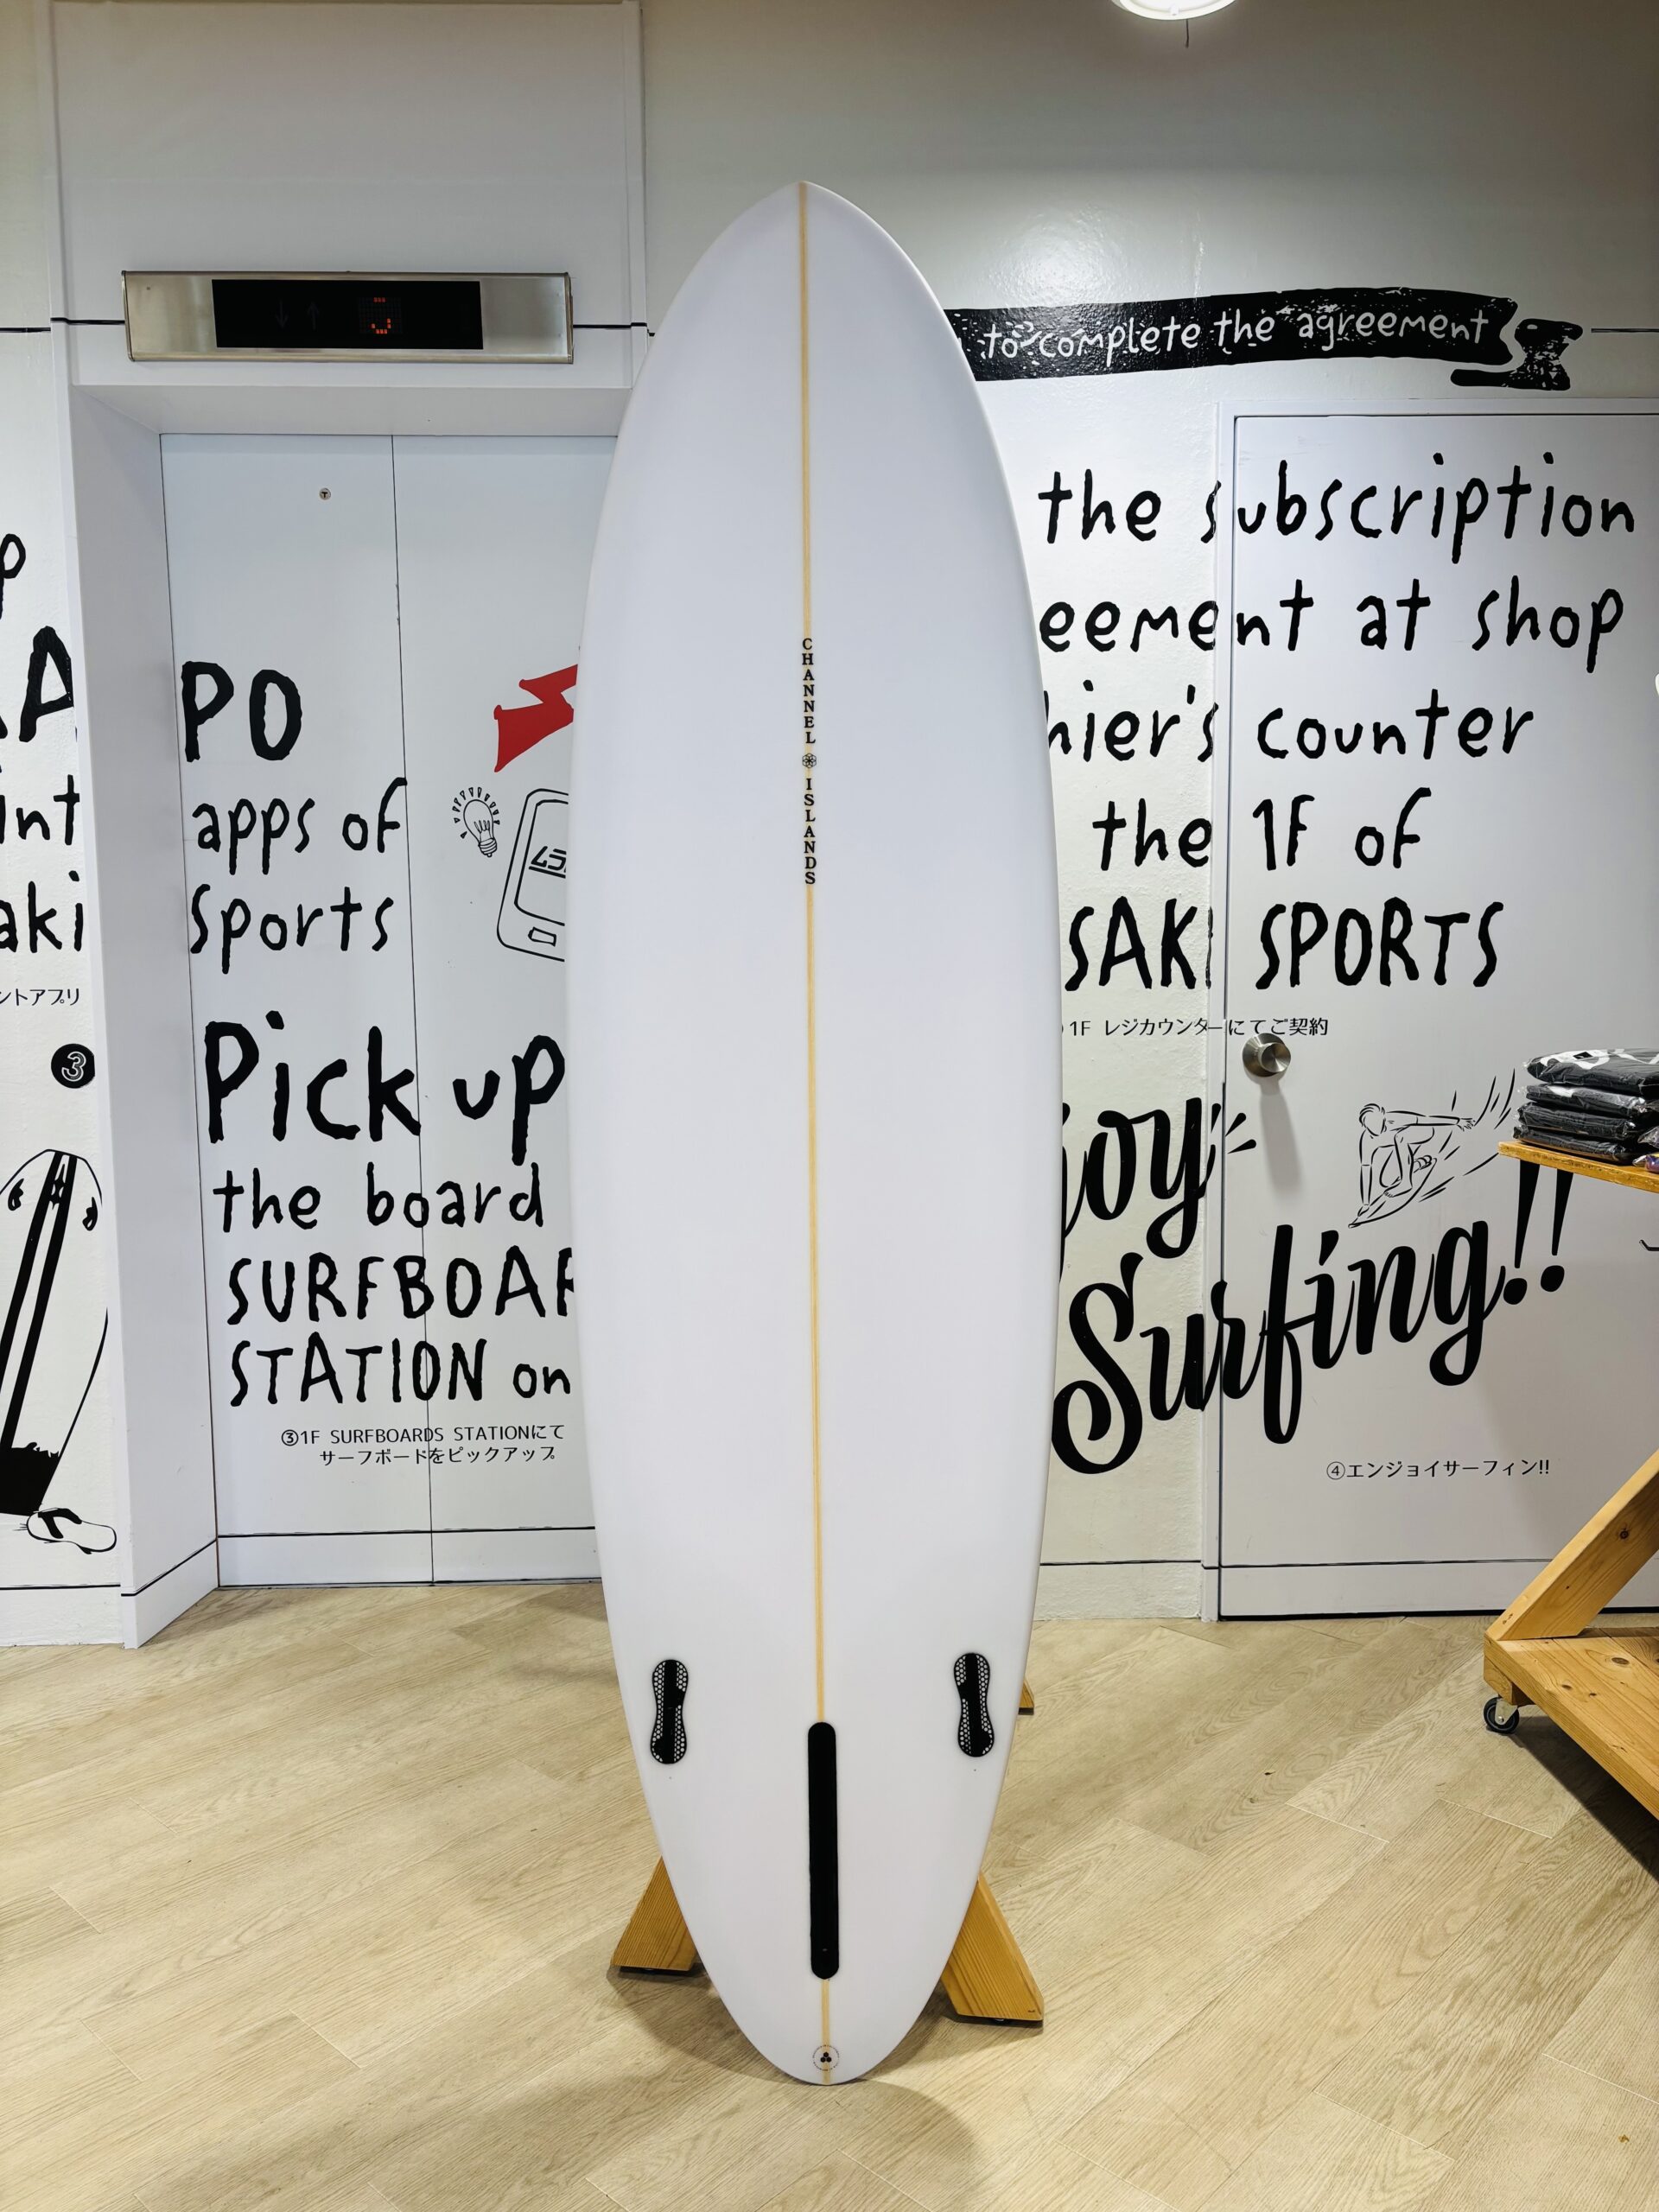 to complete the agreement
the subscription
at shop
counter
the 1F of
SPORTS
1F レジカウンターにてご契約
PO
apps of
Sports
3
Pick up
the board
STATION on
③1F SURFBOARDS STATIONにて
サーフボードをピックアップ
CHANNEL ISLANDS
Surfing!!
④エンジョイサーフィン!!